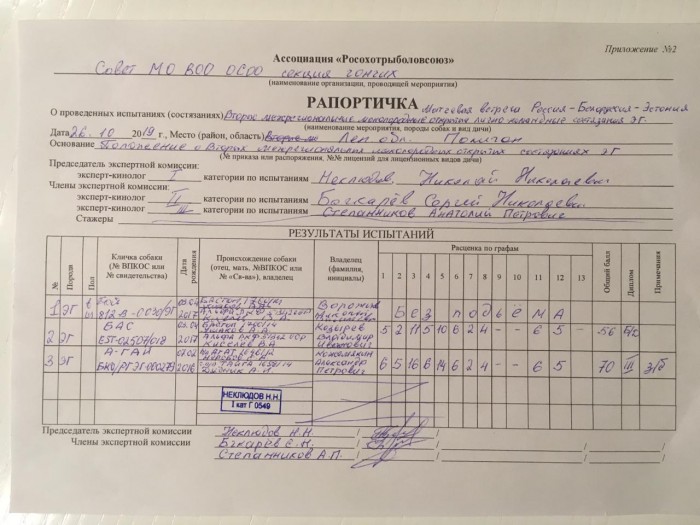 Приложение №2
Ассоциация «Росохотрыболовсоюз»
Совет МО ВОО ОСОО секция гончих
(наименование организации, проводящей мероприятия)
РАПОРТИЧКА Матчевая встреча Россия-Белоруссия-Эстония
О проведенных испытаниях (состязаниях) Вторые межрегиональные монопородные открытые лично-командные состязания ЭГ.
(наименование мероприятия, породы собак и вид дичи)
Дата 26.10 2019 г., Место (район, область) Лен обл. Полигон
Основание Положение о Вторых межрегиональных монопородных открытых состязаниях ЭГ
(№ приказа или распоряжения, №№ лицензий для лицензионных видов дичи)
Председатель экспертной комиссии:
эксперт-кинолог I категории по испытаниям Неклюдов Николай Николаевич
Члены экспертной комиссии:
эксперт-кинолог II категории по испытаниям Бочкарёв Сергей Николаевич
эксперт-кинолог III категории по испытаниям Степанников Анатолий Петрович
Стажеры
РЕЗУЛЬТАТЫ ИСПЫТАНИЙ
№ Порода Пол Кличка собаки (№ ВПКОС или № свидетельства) Дата рождения Происхождение собаки (отец, мать, №ВПКОС или № «Св-ва»), владелец Владелец (фамилия, инициалы) Расценка по графам Общий балл Диплом Примечания
1 2 3 4 5 6 7 8 9 10 11 12 13
1 ЭГ 2017 Без подъёма
2 ЭГ БАС EST-02507/018 2017 Киселев В.А. Козырев Владимир Иванович 5 2 11 5 10 6 2 4 - - 6 5 - 56 б/д
3 ЭГ А-ГАЙ 2016 Александр Петрович 6 5 16 8 14 6 2 4 - - 6 5 70 III
НЕКЛЮДОВ Н.Н.
I кат Г 0549
Председатель экспертной комиссии Неклюдов Н.Н.
Члены экспертной комиссии
Степанников А.П.